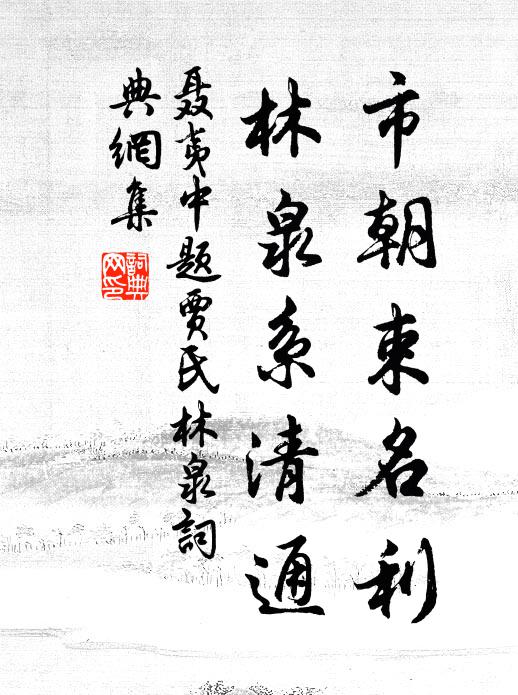 市朝束名利
林泉系清通
聂夷中题贾氏林泉詞
典網集
詞典网印